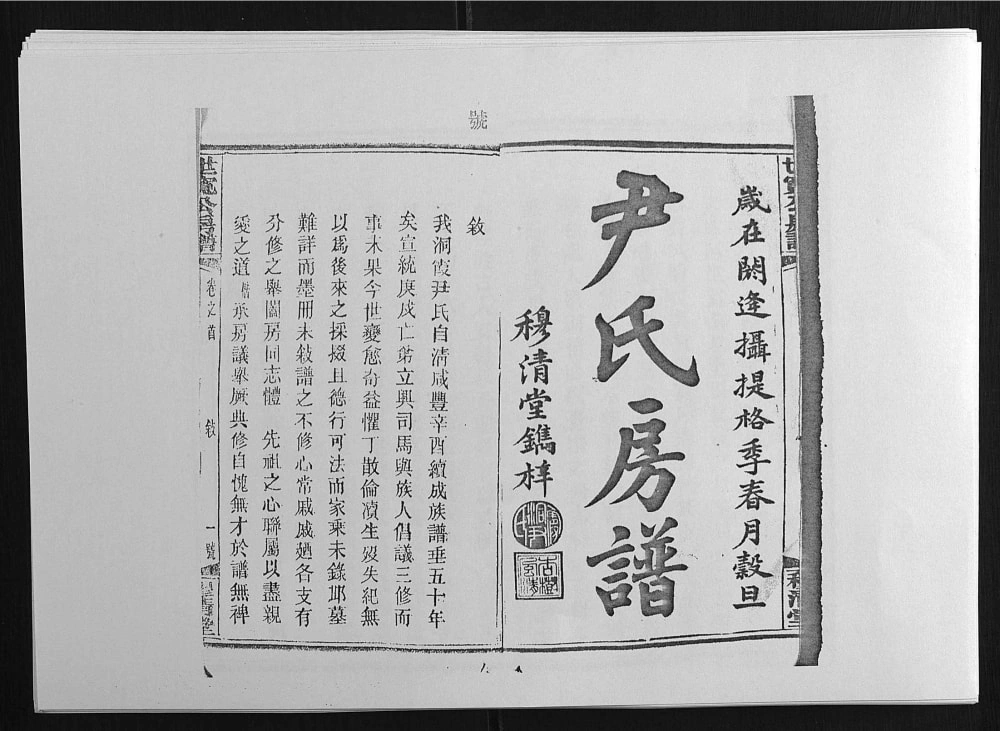 號
歲在閼逢攝提格季春月穀旦
尹氏房譜
穆清堂鐫梓
敘
我洞霞尹氏自清咸豐辛酉續成族譜垂五十年
矣宣統庚戌亡弟立興司馬與族人倡議三修而
事未果今世變愈奇益懼丁散倫瀆生歿失紀無
以爲後來之採掇且德行可法而家乘未錄邱墓
難詳而墨冊未敘譜之不修心常戚戚廼各支有
分修之舉闔房同志體 先祖之心聯屬以盡親
愛之道 承房議舉厥典修自愧無才於譜無裨
世寬公房譜
卷之首
敘
一號
穆清堂